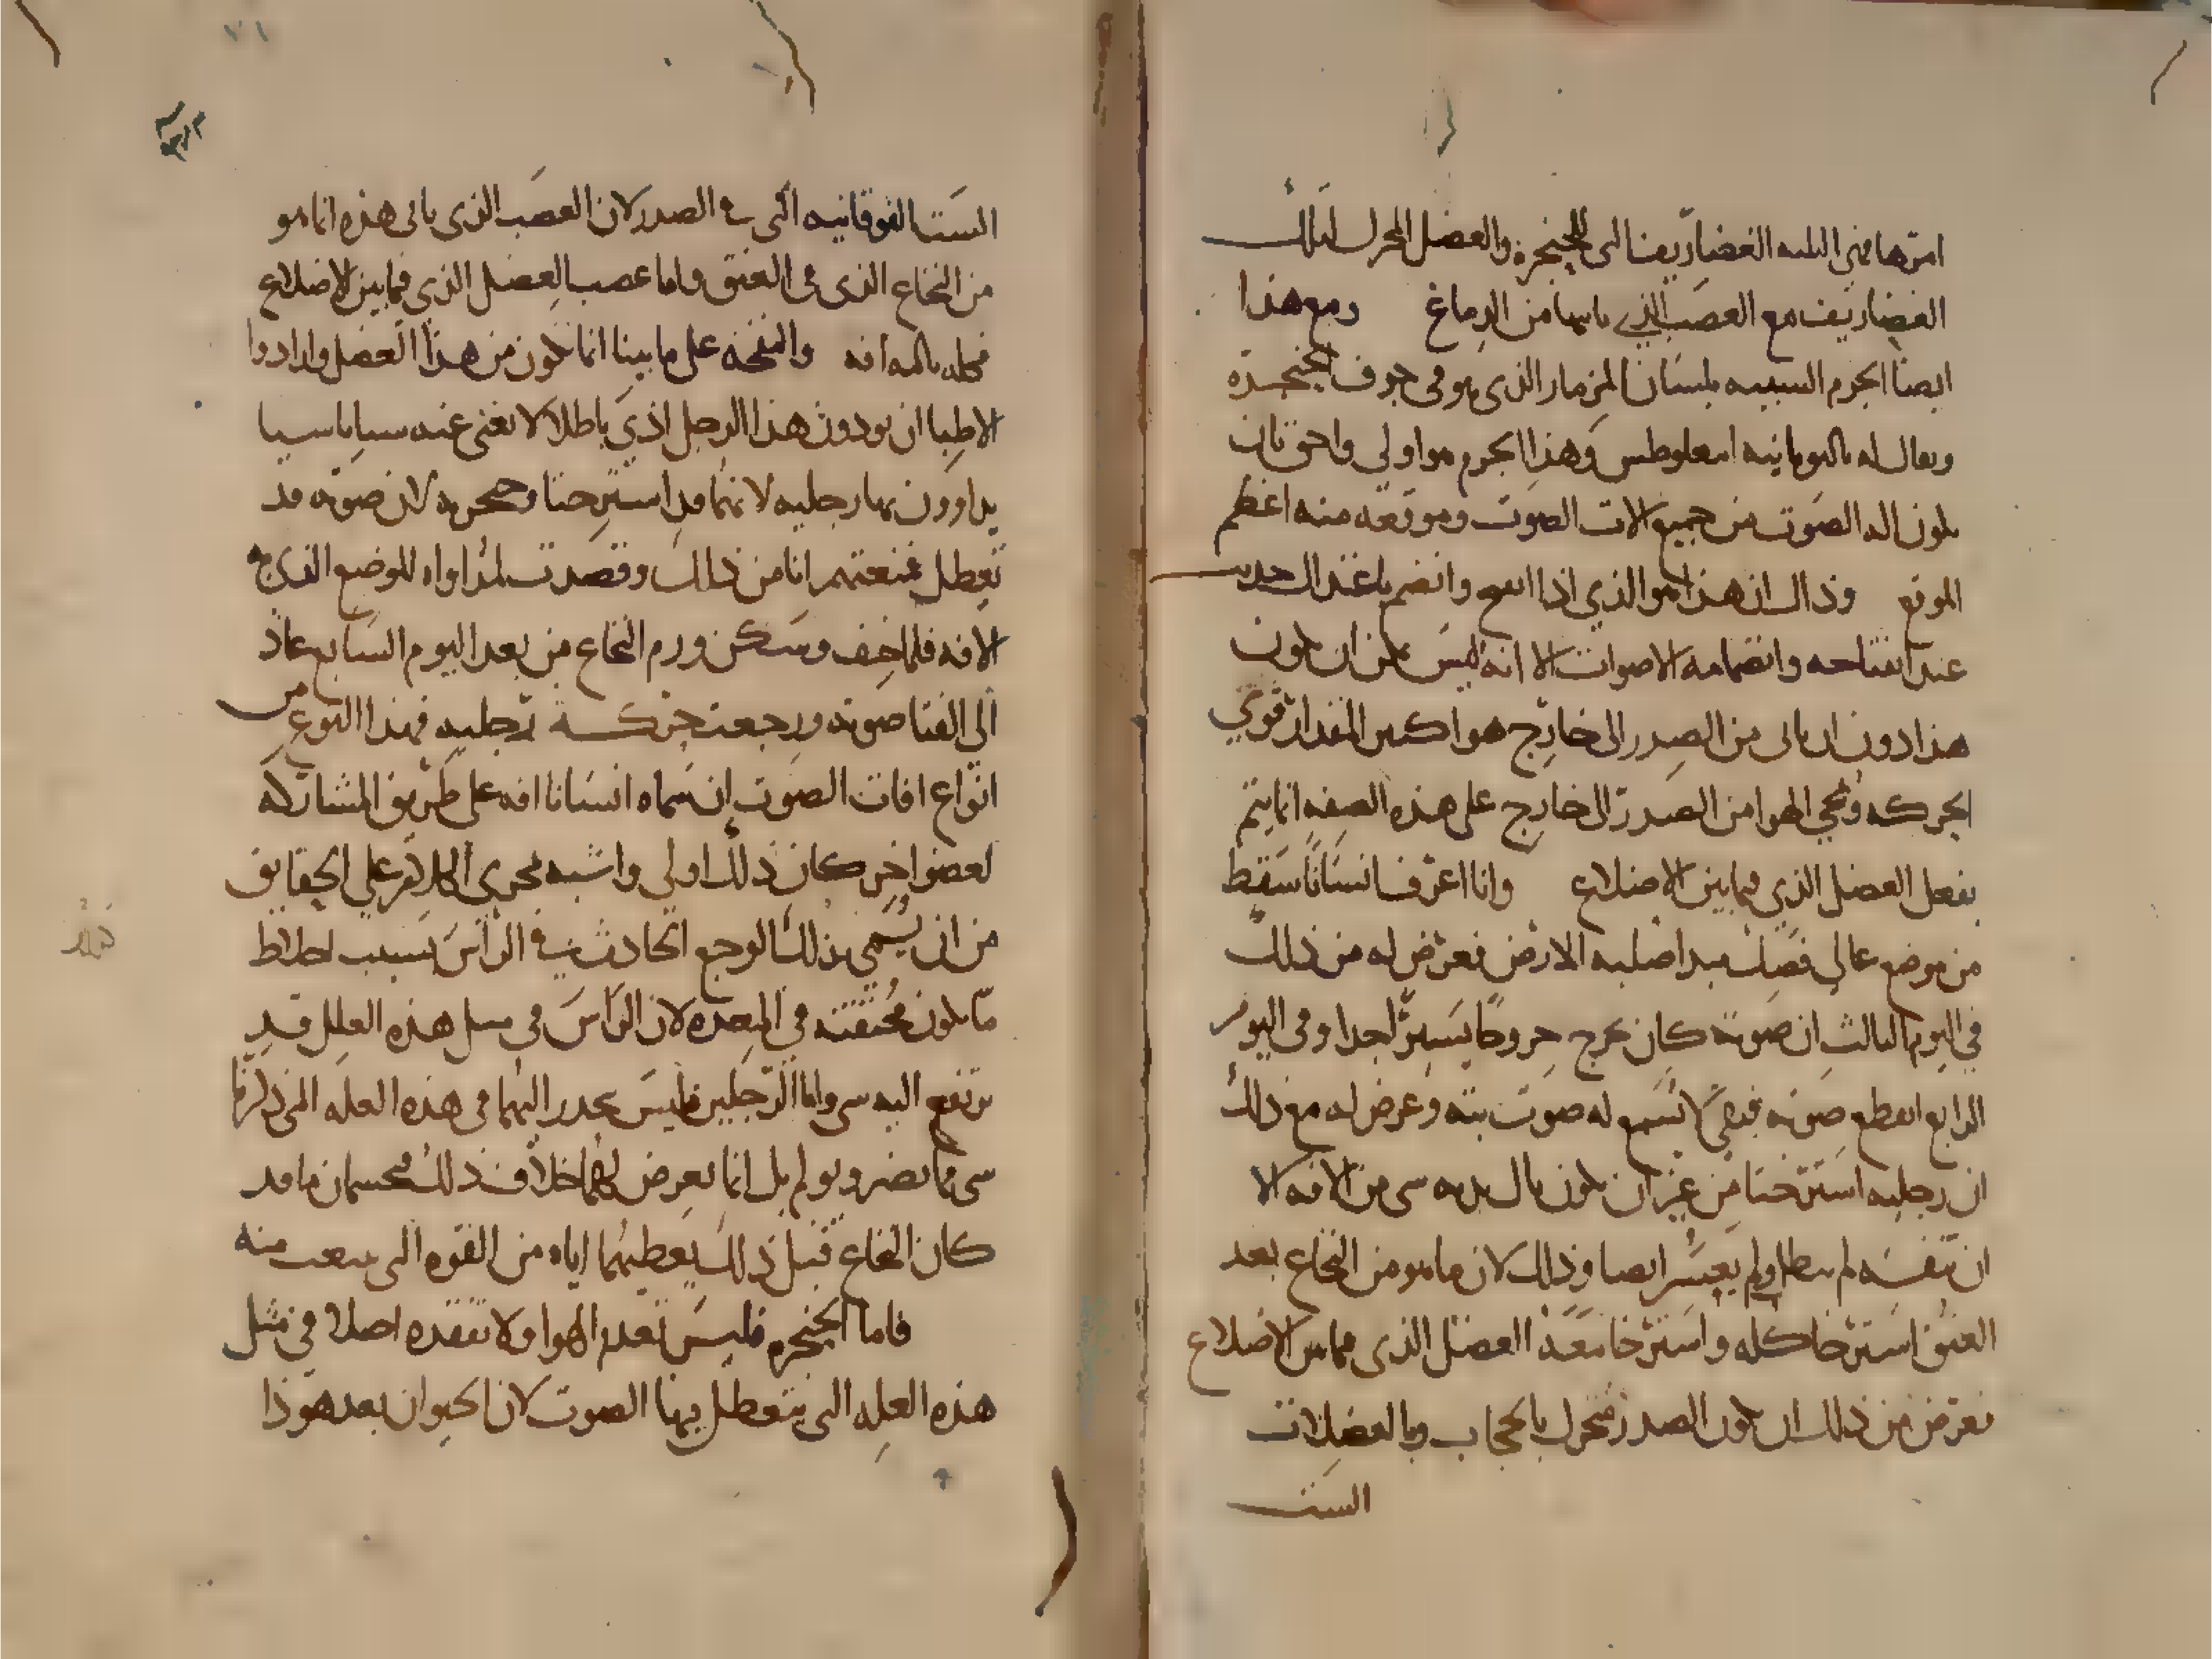 امرها فهي الثلثه الغضاريف التي للحنجره والعضل المحرك لتلك
الغضاريف مع العصب الذي ياتيها من الدماغ ومع هذا
ايضا الجرم الشبيه بلسان المزمار الذي هو في جوف الحنجرة
ويقال له باليونانيه وهذا الجرم هو اولي واحق بان
يكون اله الصوت من جميع الات الصوت وموقعه منه اعظم
الموقع وذاك ان هذا هو الذي اذا انفتح وانضم باعتدال حدثت
عند انفتاحه وانضمامه الاصوات الا انه ليس يمكن ان يكون
هذا دون ان ياتي من الصدر الى خارج هوا كثير المقدار قوي
الحركه ومجي الهوا من الصدر الى خارج على هذه الصفه انما يتم
بفعل العضل الذي فيما بين الاضلاع وانا اعرف انسانا سقط
من موضع عالي فصك مبدا صلبه الارض فعرض له من ذلك
في اليوم الثالث ان صوته كان يخرج خروجا يسيرا جدا وفي اليوم
الرابع انقطع صوته فبقي لا تسمع له صوت بته وعرض له مع ذلك
ان رجليه استرختا من غير ان يكون نال يديه شي من الافه الا
ان تنفسه لم يبطل ولم يعسر ايضا وذلك لان ما هو من النخاع بعد
العنق استرخا كله واسترخا معه العضل الذي فيما بين الاضلاع
فعرض من ذلك ان يكون الصدر يتحرك بالحجاب وبالعضلات
الست
الست الفوقانيه التي في الصدر لان العصب الذي ياتي هذه انما هو
من النخاع الذي في العنق واما عصب العضل الذي فيما بين الاضلاع
فكله نالته افه والنفخه على ما بينا انما تكون من هذا العضل وارادوا
الاطبا ان يوذون هذا الرجل اذي باطلا لا يغني عنه شيا باشيا
يداوون بها رجليه لانهما قد استرختا وحنجرته لان صوته قد
تعطل فمنعتهم انا من ذلك وقصدت لمداواه الموضع الذي به
الافه فلما خف وسكن ورم النخاع من بعد اليوم السابع عاد
الى الفتا صوته ورجعت حركة رجليه فهذا النوع من
انواع افات الصوت ان سماه انسانا افه على طريق المشاركه
لعضو اخر كان ذلك اولي واشبه بمجري الكلام على الحقايق
من ان يسمي بذلك الوجع الحادث في الراس بسبب اخلاط
ما يكون محتقنه في المعده لان الراس في مثل هذه العلل قد
يرتفع اليه شي واما الرجلين فليس ينحدر اليهما في هذه العله التي ذكرنا
شي مما يضر ويولم بل انما يعرض لهما خلاف ذلك فيحسمان ما قد
كان النخاع قبل ذلك يعطيهما اياه من القوه التي تنبعث منه
فاما الحنجره فليس تعدم الهوا ولا تفقده اصلا في مثل
هذه العله التي يتعطل فيها الصوت لان الحيوان بعد هوذا